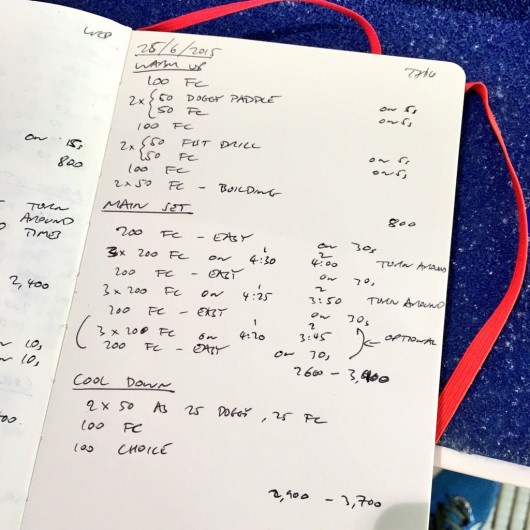 WED
on 15s
800
TURN
AROUND
TIMES
2,400
on 10s
on 10s
25/6/2015
WARM UP
100 FC
2x { 50 DOGGY PADDLE on 5s
50 FC on 5s
100 FC
2x { 50 FIST DRILL on 5s
50 FC on 5s
100 FC
2x50 FC - BUILDING
800
MAIN SET
200 FC - EASY on 30s
3x 200 FC on 1 4:30 2 4:00 TURN AROUND
200 FC - EASY on 30s
3x 200 FC on 4:25 3:50 TURN AROUND
200 FC - EASY on 30s
(3x200 FC on 1 4:20 2 3:45 ) ← OPTIONAL
200 FC - EASY on 30s
2600 - 3,400
COOL DOWN
2x50 AS 25 DOGGY, 25 FC
100 FC
100 CHOICE
2,900 - 3,700